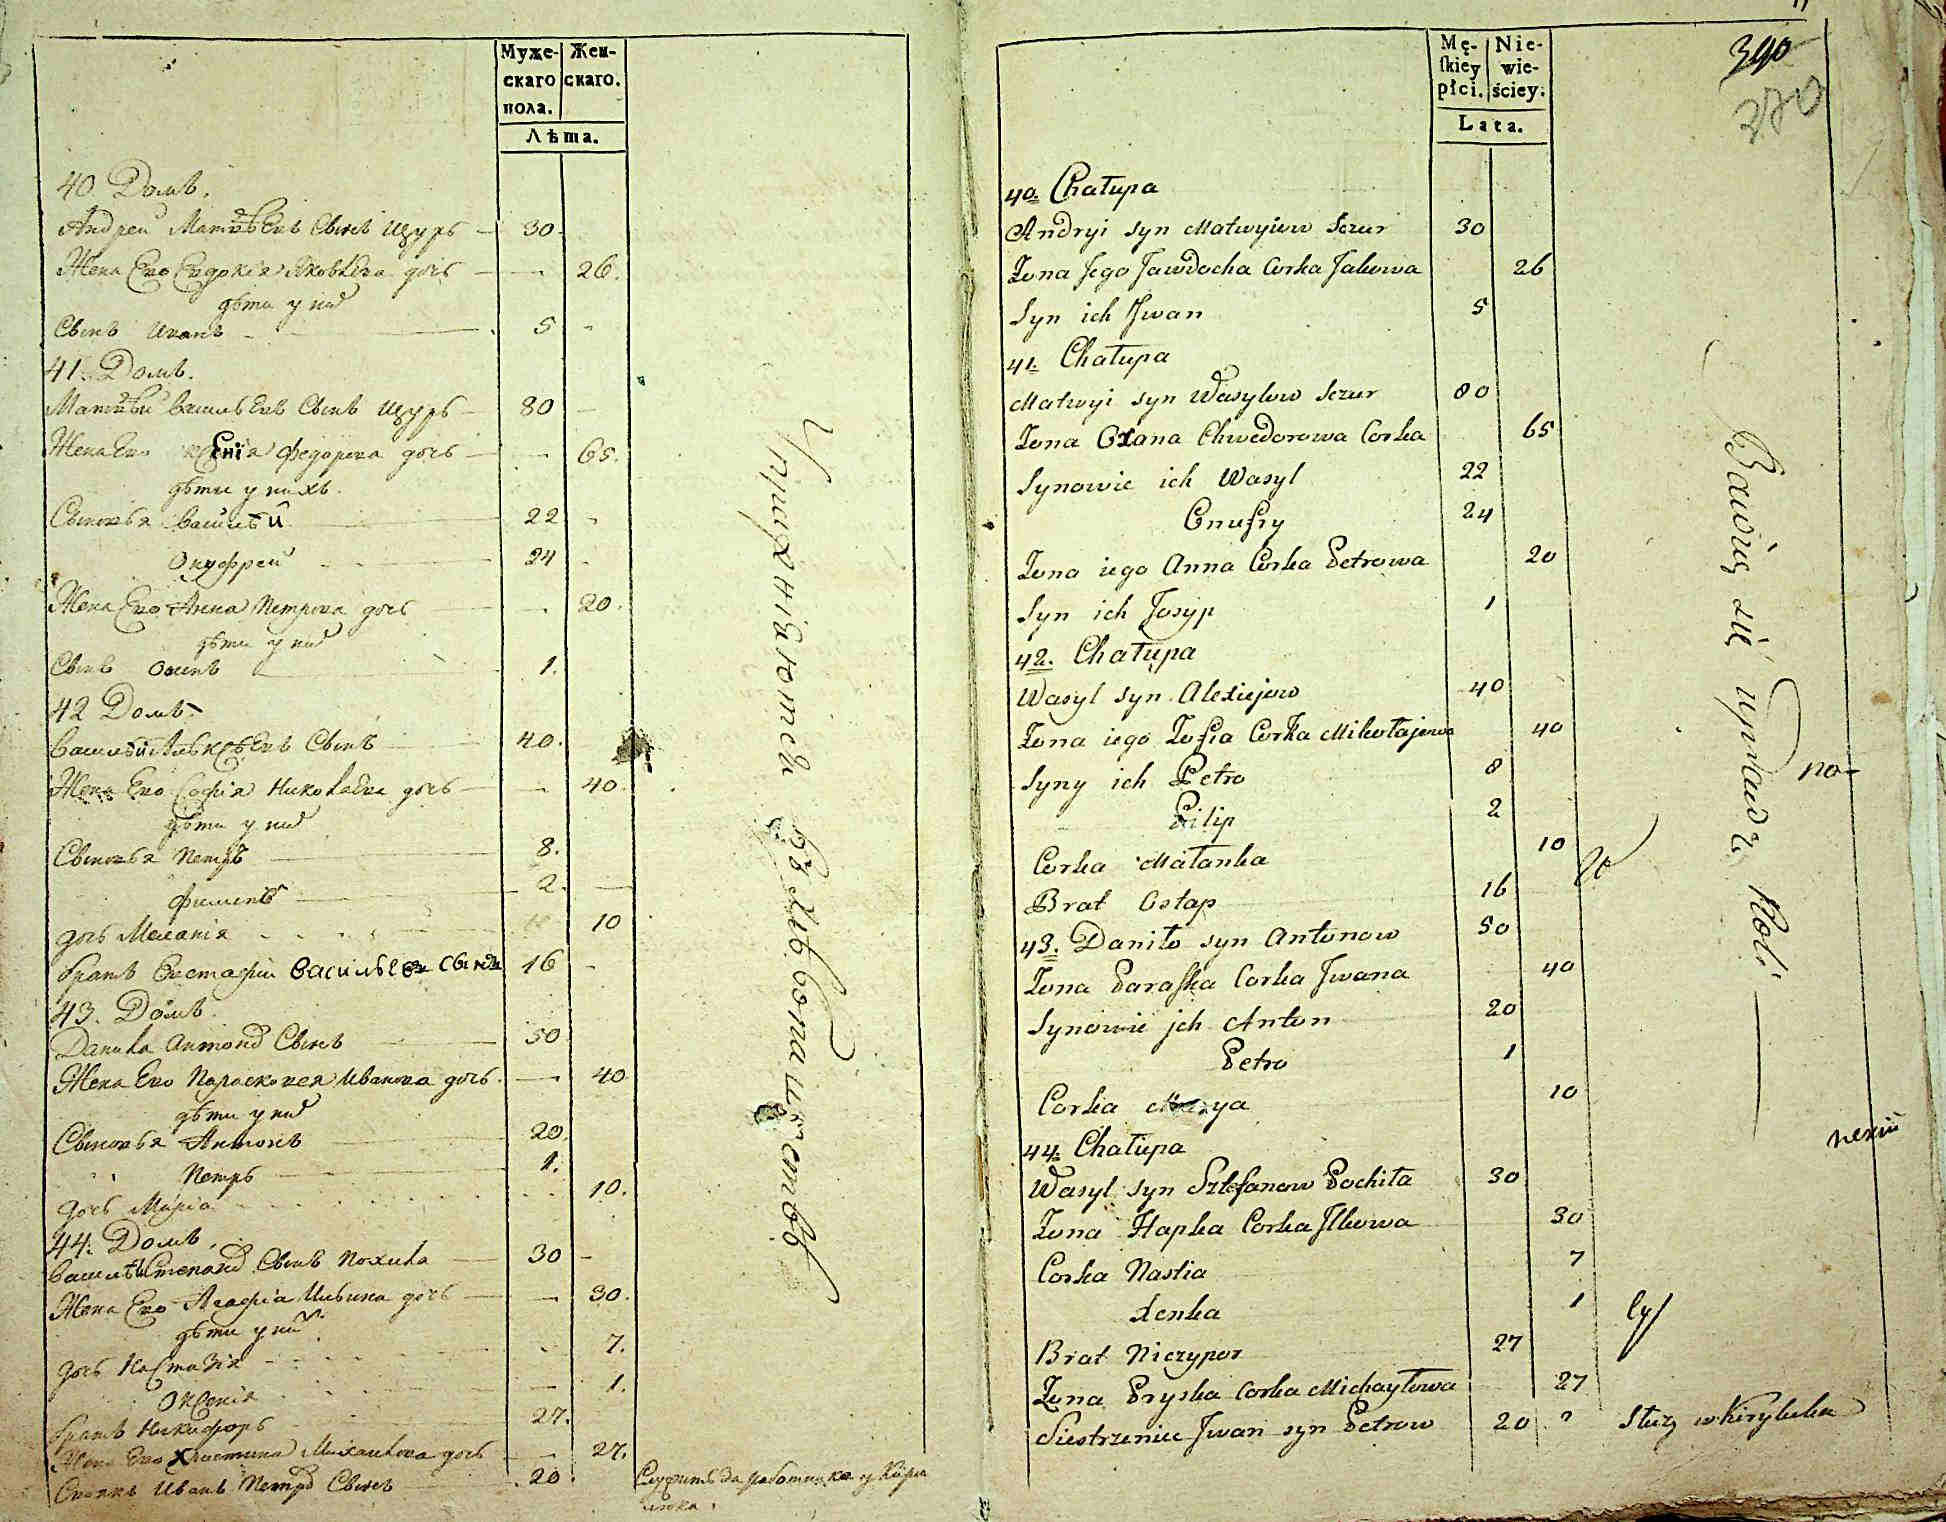 Муже-
скаго
пола.
Жен-
скаго.
Лѣта.
40 Домъ.
Андрей Матвѣевъ Сынъ Щуръ 30
Жена Ево Евдокія Яковлева дочь 26.
дѣти у них
Сынъ Иванъ 5
41. Домъ.
Матвѣй Васильевъ Сынъ Щуръ 80
Жена Ево Ксенія Федорова дочь 65.
дѣти у нихъ.
Сыновья Василѣй 22
Онуфрей 24
Жена Ево Анна Петрова дочь 20.
дѣти у них
Сынъ Осипъ 1.
42 Домъ.
Василѣй Алексѣевъ Сынъ 40.
Жена Ево Софія Николаева дочь 40
дѣти у них
Сыновья Петръ 8.
Филипъ 2.
дочь Меланія 10
братъ Евстафій Васильевъ Сынъ 16
43. Домъ.
Данила Антонов Сынъ 50
Жена Ево Парасковея Иванова дочь. 40
дѣти у них
Сыновья Антонъ 20.
Петръ 1.
дочь Марія 10.
44. Домъ.
Василѣй Степанов Сынъ Похила 30
Жена Ево Агафія Ильина дочь 30.
дѣти у них.
дочь Настазія 7.
Оксенія 1.
братъ Никифоръ 27.
Жена Ево Христина Михайлова дочь 27.
Иванъ Петров Сынъ 20. Служитъ за работника у Кири
люка.
Упражняются въ хлѣбопашествѣ
Mę-
skiey
płci.
Nie-
wie-
ściey.
Lata.
390
270
40. Chałupa
Andryi syn Matwyiow Sczur 30
Zona Jego Jawdocha Corka Jakowa 26
Syn ich Jwan 5
41. Chałupa
Matwyi syn Wasylow Sczur 80
Zona Oxana Chwedorowa Corka 65
Synowie ich Wasyl 22
Onufry 24
Zona iego Anna Corka Petrowa 20
Syn ich Josyp 1
42. Chałupa
Wasyl syn Alexiejow 40
Zona iego Zofia Corka Mikołajowa 40
Syny ich Petro 8
Pilip 2
Corka Małanka 10
Brat Ostap 16
43. Daniło syn Antonow 50
Zona Paraska Corka Jwana 40
Synowie jch Anton 20
Petro 1
Corka Marya 10
44. Chałupa
Wasyl syn Sztefanow Pochiła 30
Zona Hapka Corka Jlkowa 30
Corka Nastia 7
Xenka 1
Brat Niczypor 27
Zona Pryska Corka Michayłowa 27
Siestrzeniec Jwan syn Petrow 20 Służy w Kiryluka
Bawią się uprawą Roli